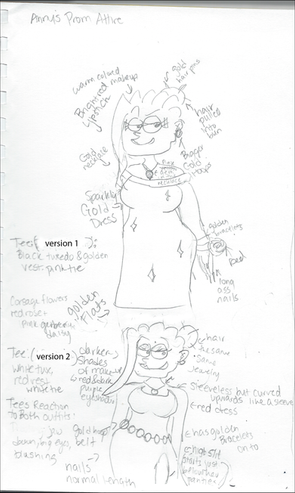 Amy's Prom Attire
warm colored
Bronzed makeup
Lipstick
gold
hair pins
hair
pulled
into
bun
Gold
necklace
Bigger
Gold
hoops
Sparkly
Gold
Dress
golden
bracelets
long
ass
nails
golden
flats
Tee ( version 1 ):
Black tuxedo & golden
vest: pink tie
Corsage flowers
red rose &
pink gerbera
daisy
Tee ( version 2 )
white tux,
red dress
white tie
darker
shades
of makeup
red
purple
eyeshadow
hair
the same
same
jewelry
Sleeveless but curved
upwards like a sleeve
red dress
Tees Reaction
to Both outfits:
jaw
eyes,
blushing
Gold hoop
belt
nails
normal length
has golden
Bracelets
on to
high slit